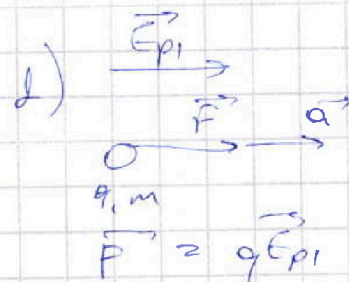 E_p1
d)
F a
q, m
F = qE_p1